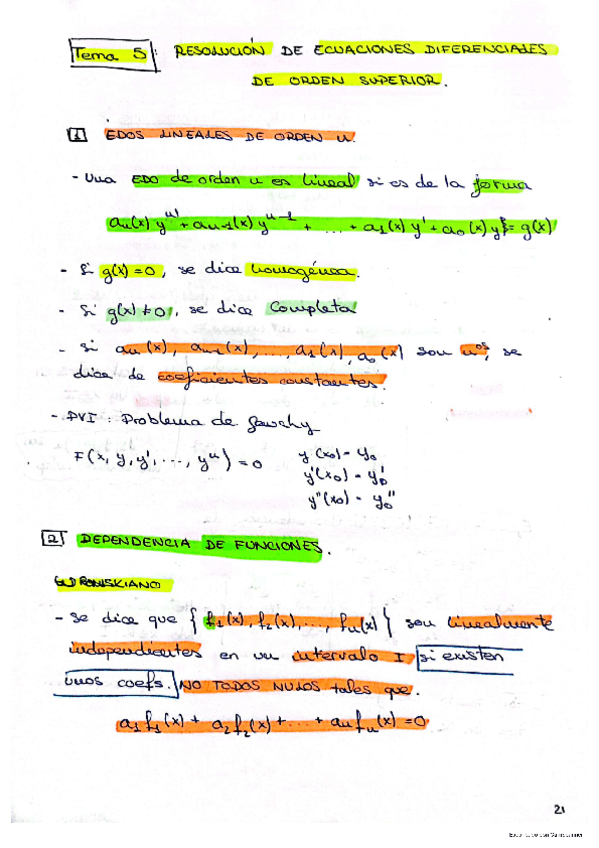 Tema 5: RESOLUCIÓN DE ECUACIONES DIFERENCIALES
DE ORDEN SUPERIOR.
1 EDOS LINEALES DE ORDEN n.
- Una EDO de orden n es lineal si es de la forma
an(x) y^n) + an-1(x) y^n-1 + ... + a1(x) y' + a0(x) y = g(x)
- Si g(x) = 0, se dice homogénea.
- Si g(x) ≠ 0, se dice Completa
- Si an(x), an-1(x), ..., a1(x), a0(x) son nos, se
dice de coeficientes constantes.
- PVI: Problema de Cauchy
F(x, y, y', ..., y^n) = 0 y(x0) = y0
y'(x0) = y0'
y''(x0) = y0''
2 DEPENDENCIA DE FUNCIONES.
WRONSKIANO
- Se dice que {f1(x), f2(x), ..., fn(x)} son linealmente
independientes en un intervalo I si existen
unos coefs. NO TODOS NULOS tales que.
a1f1(x) + a2f2(x) + ... + anfn(x) = 0
21